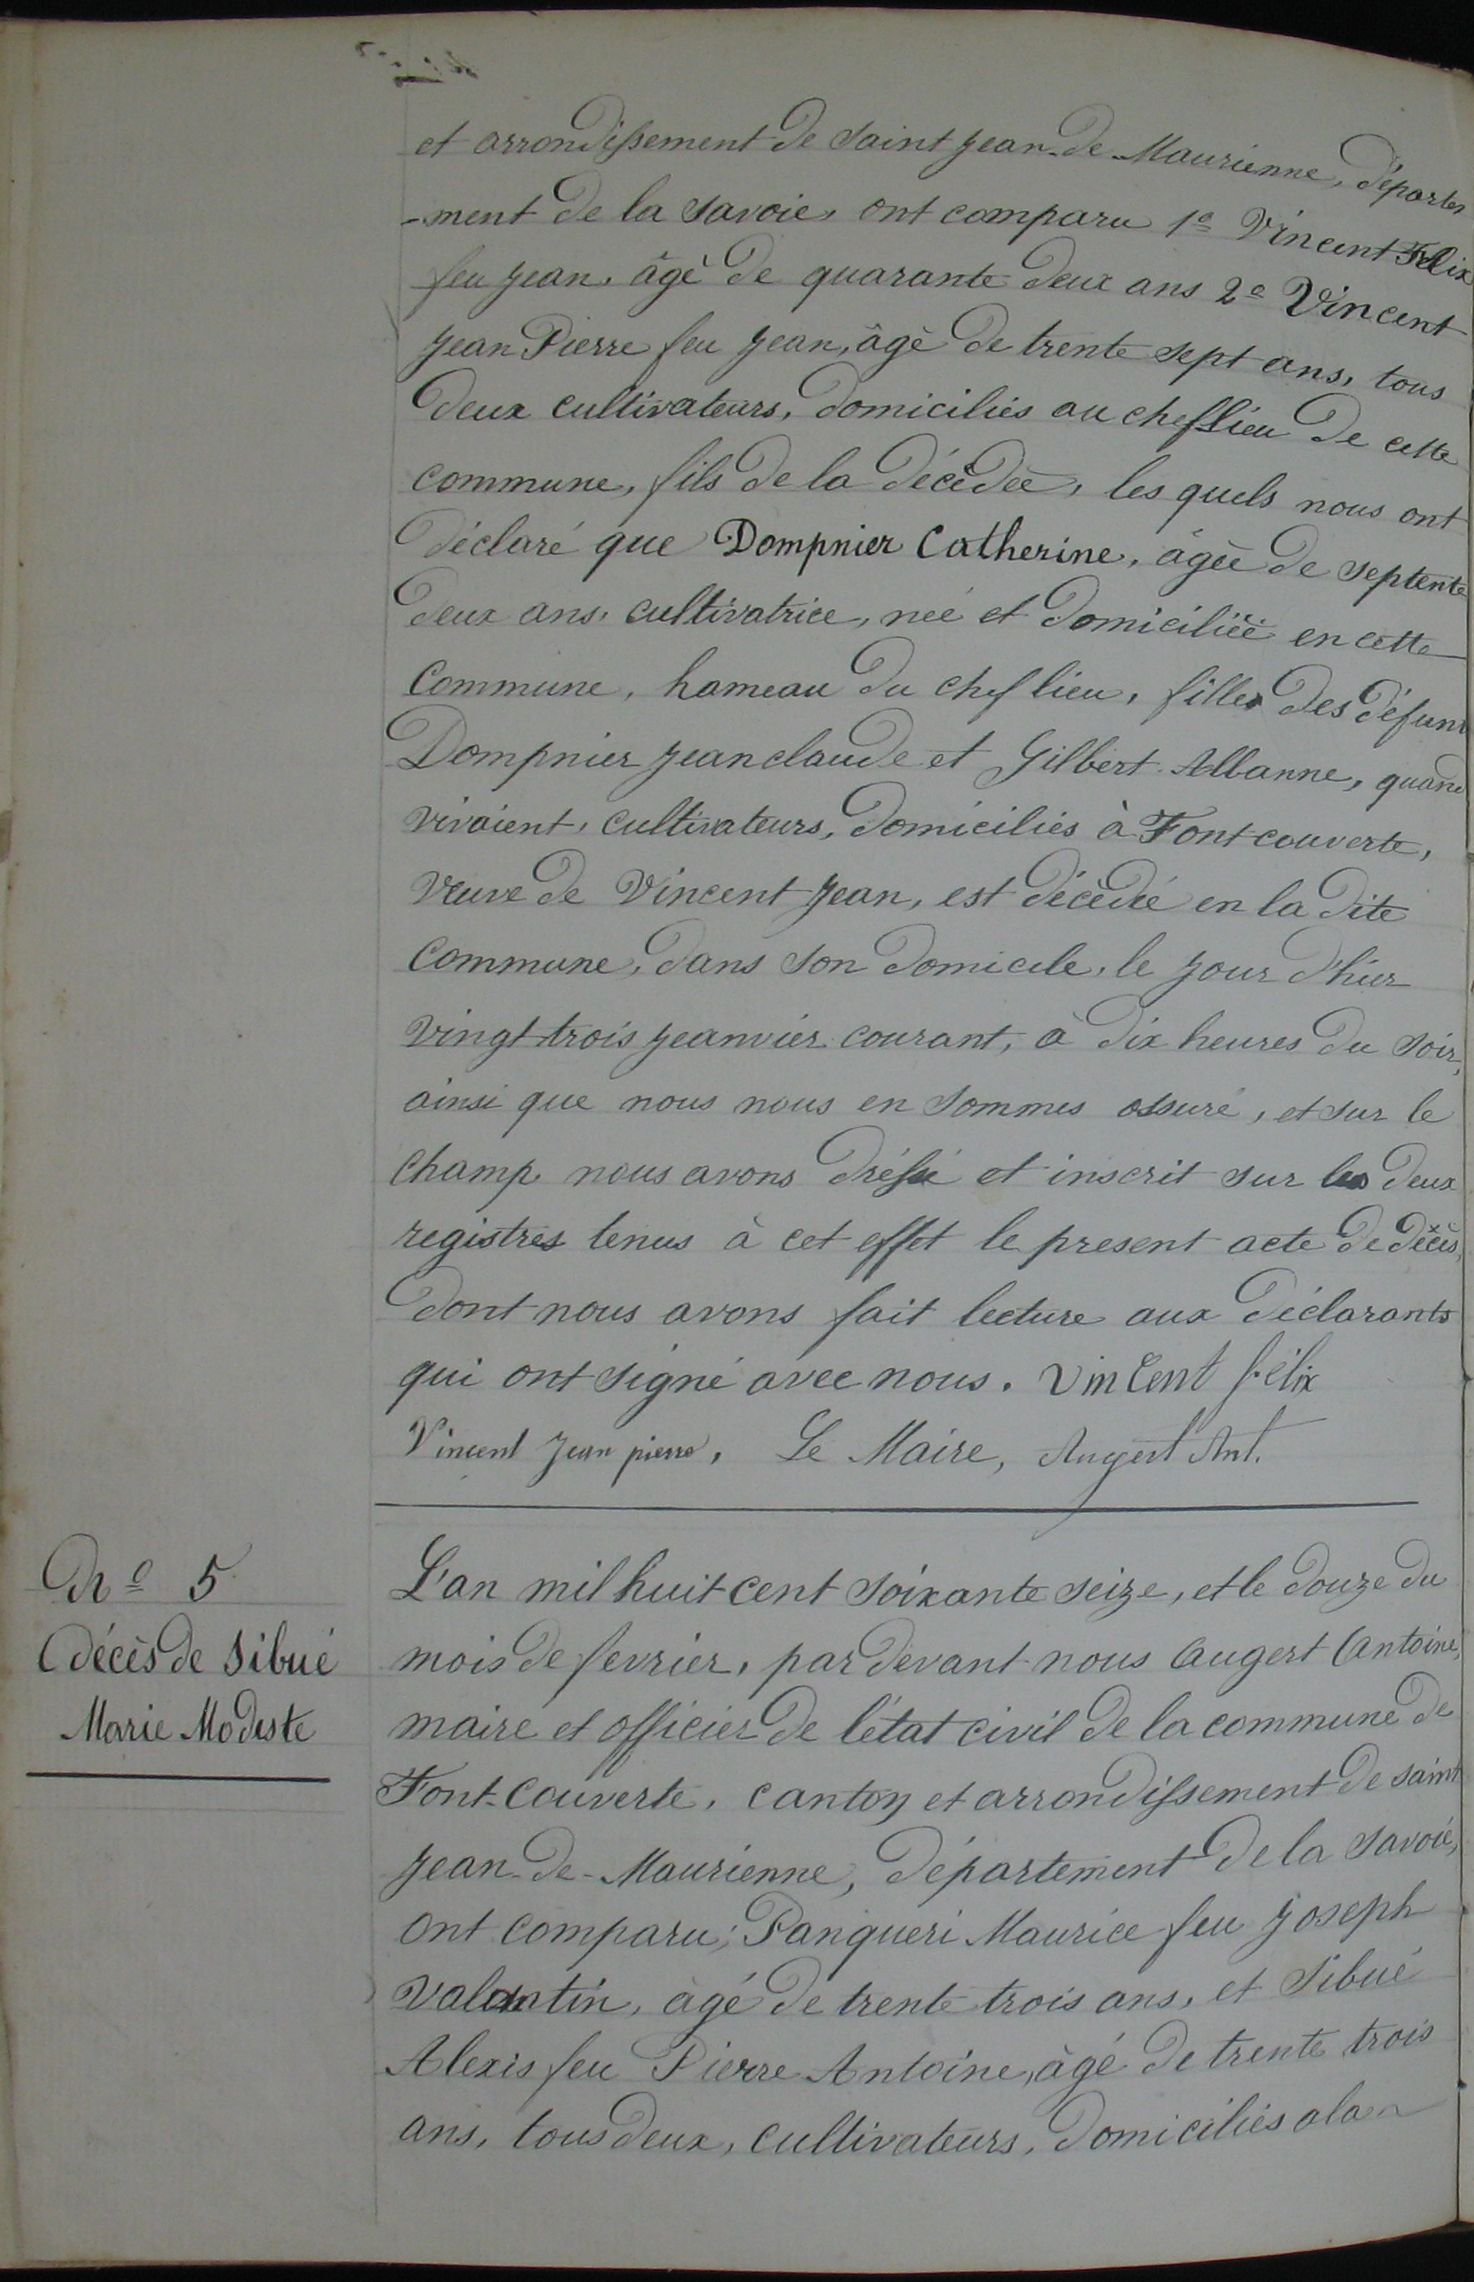 et arrondissement de Saint Jean-de-Maurienne, départe
-ment de la Savoie, ont comparu 1º Vincent Félix
feu Jean, âgé de quarante deux ans 2º Vincent
Jean Pierre feu Jean, âgé de trente sept ans, tous
deux cultivateurs, domiciliés au cheflieu de cette
commune, fils de la décédée, les quels nous ont
déclaré que Dompnier Catherine, âgée de septente
deux ans, cultivatrice, née et domiciliée en cette
Commune, hameau du chef lieu, fille des défunt
Dompnier Jeanclaude et Gilbert Albanne, quand
vivaient, cultivateurs, domiciliés à Fontcouverte,
veuve de Vincent Jean, est décédée en la dite
Commune, dans son domicile, le jour d'hier
vingt trois jeanvier courant, à dix heures du soir,
ainsi que nous nous en sommes assuré, et sur le
champ nous avons dréssé et inscrit sur les deux
registres tenus à cet effet le present acte de décès,
dont nous avons fait lecture aux déclarants
qui ont signé avec nous. Vincent félix
Vincent Jean pierre, Le Maire, Augert Ant.
Nº 5
Décès de Sibué
Marie Modeste
L'an mil huit cent soixante seize, et le douze du
mois de fevrier, par devant nous Augert Antoine,
maire et officier de l'état civil de la commune de
Font-Couverte, canton et arrondissement de saint
Jean-de-Maurienne, département de la Savoie,
ont comparu; Panqueri Maurice feu Joseph
Valantin, âgé de trente trois ans, et Sibué
Alexis feu Pierre Antoine, âgé de trente trois
ans, tous deux, cultivateurs, domiciliés a la